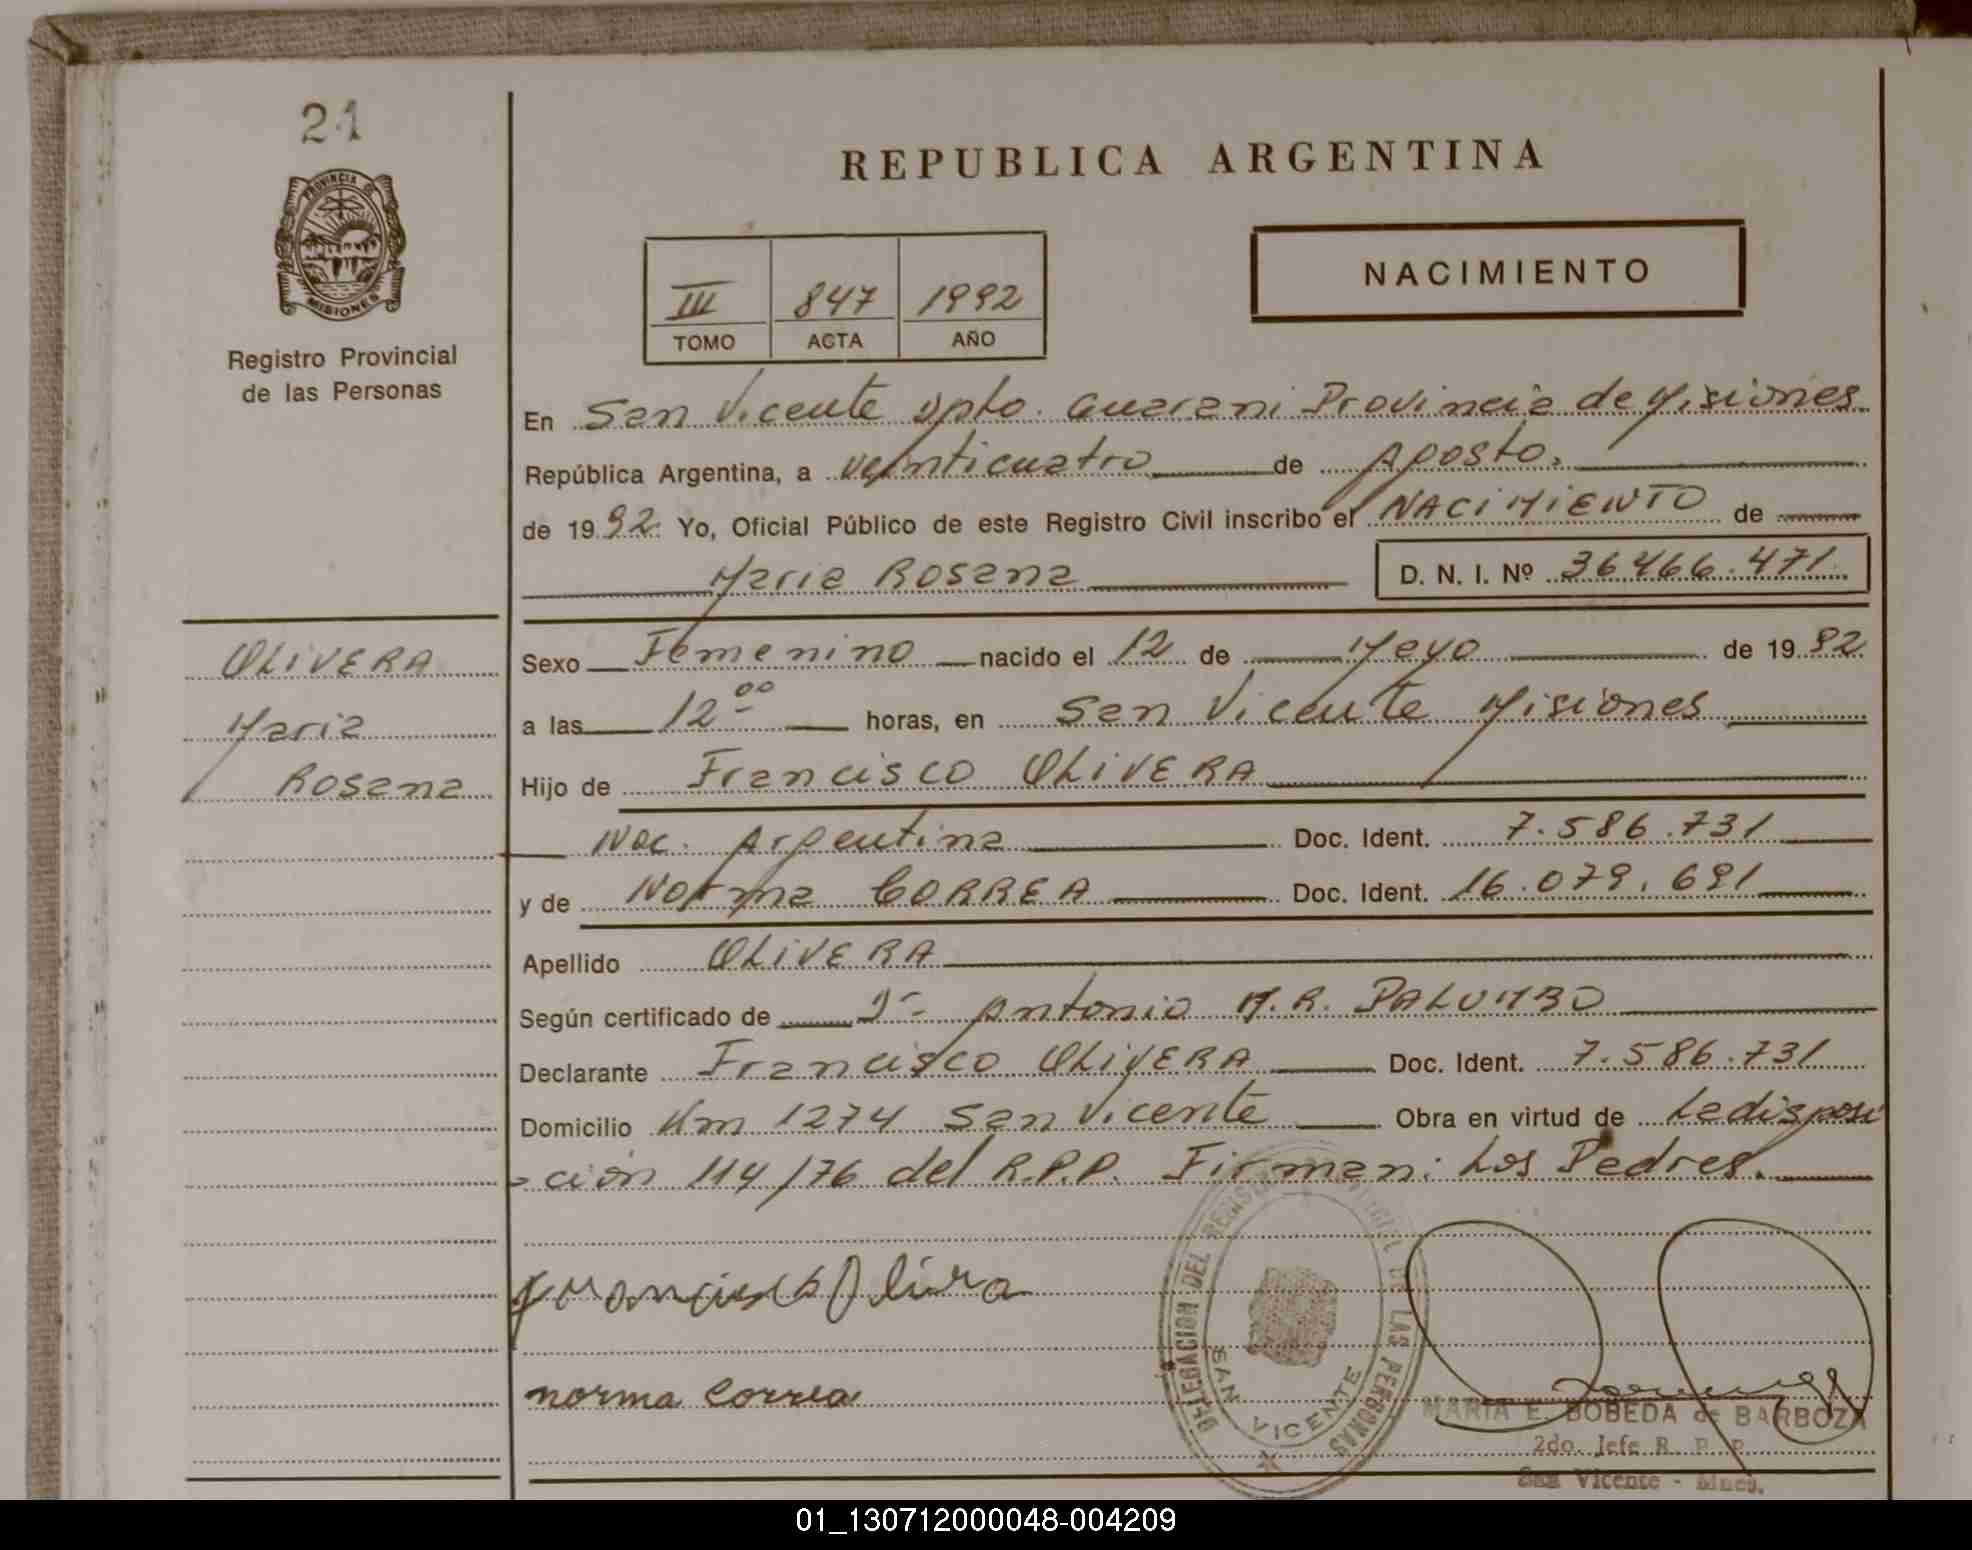 21
PROVINCIA DE
MISIONES
Registro Provincial
de las Personas
REPUBLICA ARGENTINA
III 847 1992
TOMO ACTA AÑO
NACIMIENTO
En San Vicente Dpto. Guarani Provincia de Misiones
República Argentina, a veinticuatro de Agosto.
de 1992. Yo, Oficial Público de este Registro Civil inscribo el NACIMIENTO de
Maria Rosana D. N. I. Nº 36466.471.
OLIVERA
Maria
Rosana
Sexo Femenino nacido el 12 de Mayo de 1992
a las 12 00 horas, en San Vicente Misiones
Hijo de Francisco OLIVERA
Nac. Argentina Doc. Ident. 7.586.731
y de Norma CORREA Doc. Ident. 16.079.691
Apellido OLIVERA
Según certificado de Antonio M.R. PALUMBO
Declarante Francisco OLIVERA Doc. Ident. 7.586.731
Domicilio Km 1274 San Vicente Obra en virtud de La disposi
-ción 114/76 del R.P.P. Firman: Los Padres.
Francisco Olivera
norma Correa
DELEGACION DEL REGISTRO PROVINCIAL DE LAS PERSONAS
SAN VICENTE
MARIA E. BOBEDA de BARBOZA
2do. Jefe R. P. P.
San Vicente - Mnes.
01_130712000048-004209